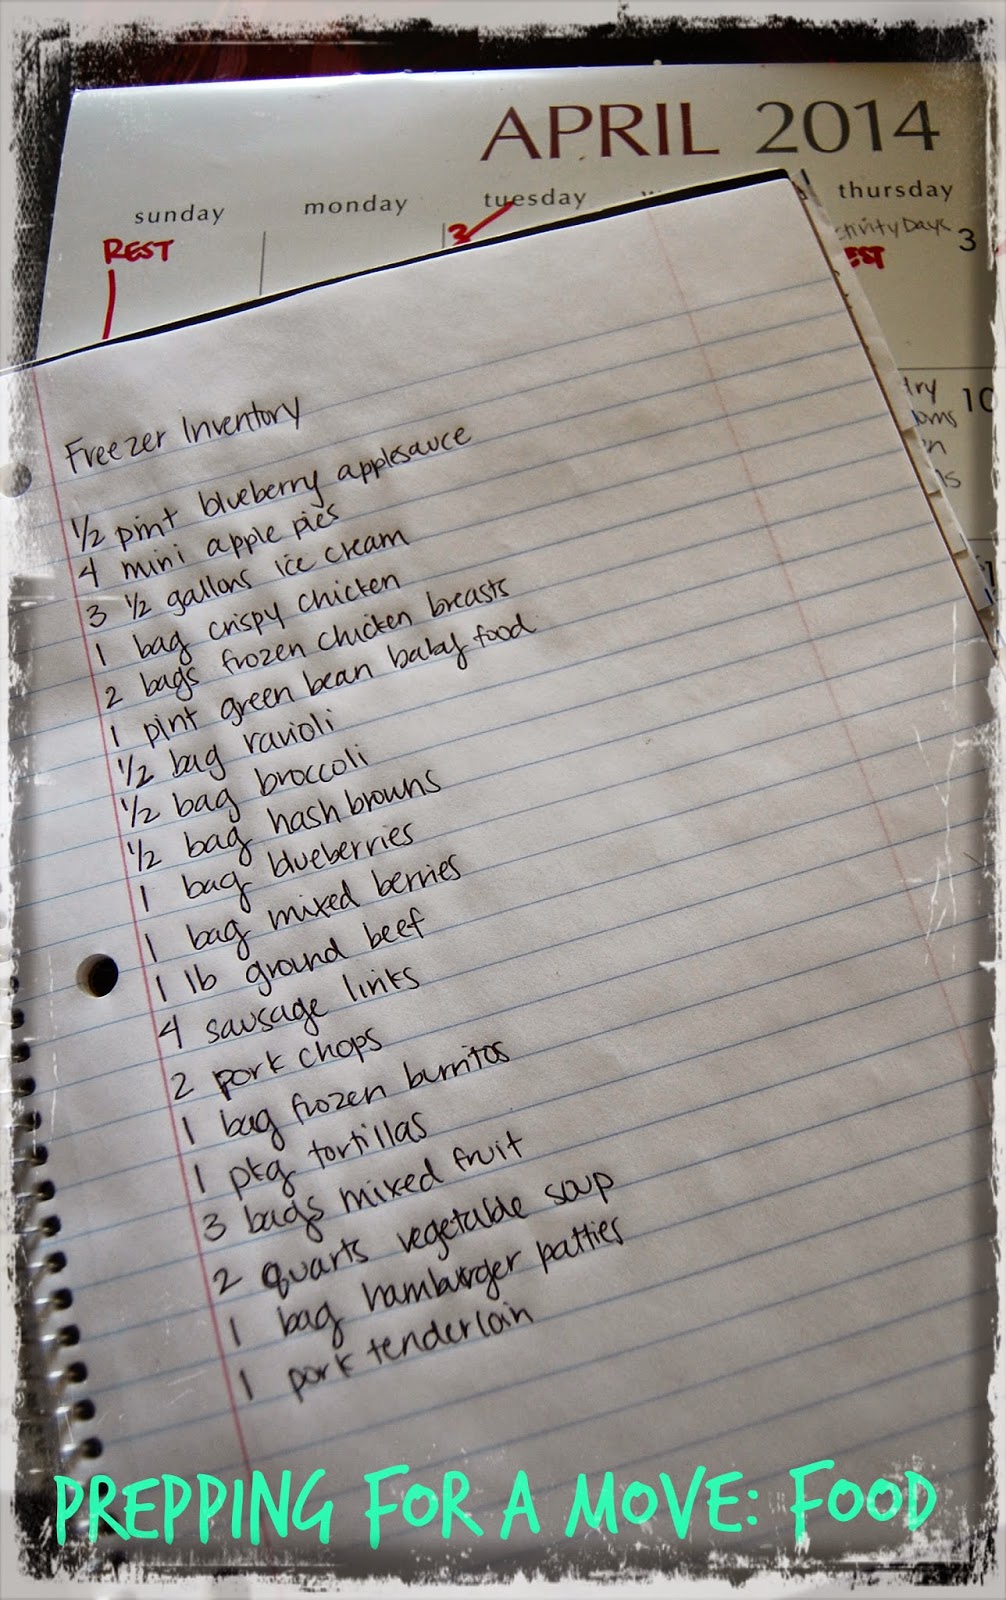 APRIL 2014
sunday monday tuesday thursday
REST 3 3
Freezer Inventory
1/2 pint blueberry applesauce
4 mini apple pies
3 1/2 gallons ice cream
1 bag crispy chicken
2 bags frozen chicken breasts
1 pint green bean baby food
1/2 bag ravioli
1/2 bag broccoli
1/2 bag hashbrowns
1 bag blueberries
1 bag mixed berries
1 lb ground beef
4 sausage links
2 pork chops
1 bag frozen burritos
1 pkg tortillas
3 bags mixed fruit
2 quarts vegetable soup
1 bag hamburger patties
1 pork tenderloin
10
PREPPING FOR A MOVE: FOOD